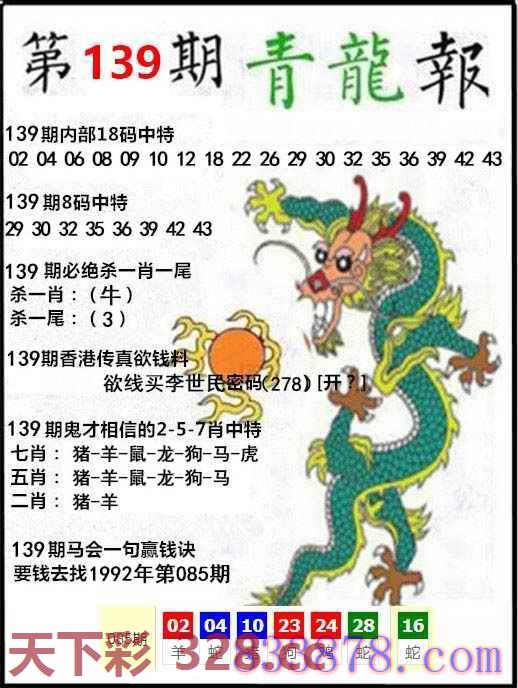 第139期青龍報
139期内部18码中特
02 04 06 08 09 10 12 18 22 26 29 30 32 35 36 39 42 43
139期8码中特
29 30 32 35 36 39 42 43
139期必绝杀一肖一尾
杀一肖：（牛）
杀一尾：（3）
139期香港传真欲钱料
欲线买李世民密码(278)[开？]
139期鬼才相信的2-5-7肖中特
七肖：猪-羊-鼠-龙-狗-马-虎
五肖：猪-羊-鼠-龙-狗-马
二肖：猪-羊
139期马会一句赢钱诀
要钱去找1992年第085期
085期 02 04 10 23 24 28 16
羊 蛇 狗 鸡 蛇 蛇
天下彩